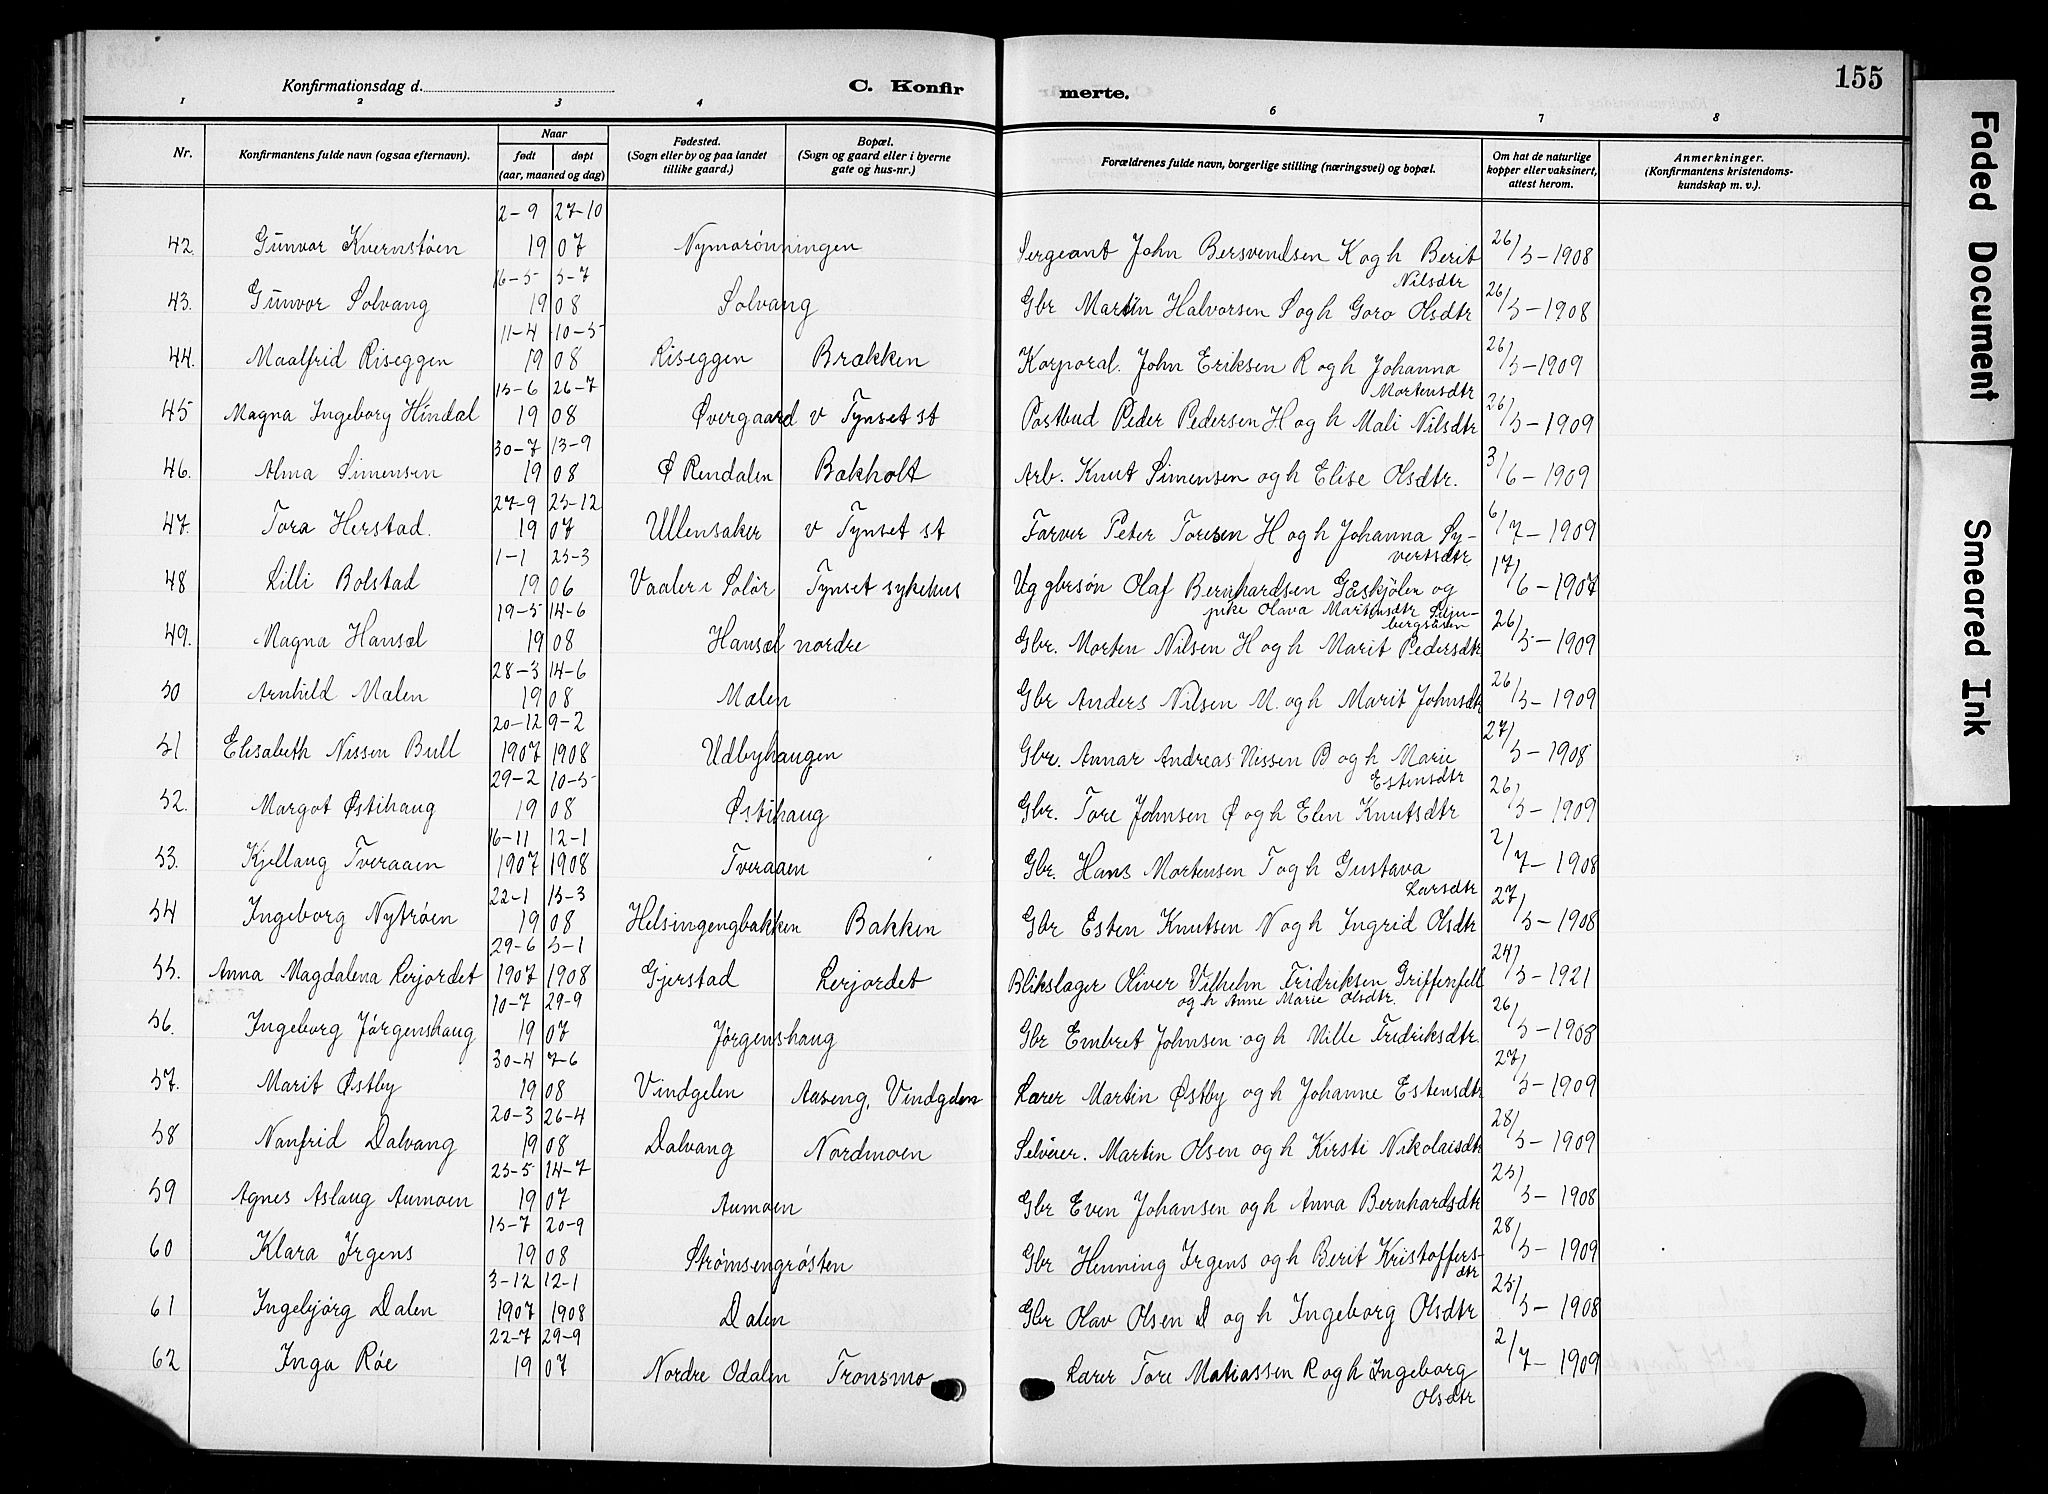 155
Konfirmationsdag d. C. Konfirmerte.
1 2 3 4 6 7 8
Nr. Konfirmantens fulde navn (ogsaa efternavn). Naar født døpt (aar, maaned og dag) Fødested. (Sogn eller by og paa landet tillike gaard.) Bopæl. (Sogn og gaard eller i byerne gate og hus-nr.) Forældrenes fulde navn, borgerlige stilling (næringsvei) og bopæl. Om hat de naturlige kopper eller vaksinert, attest herom. Anmerkninger. (Konfirmantens kristendomskundskap m. v.).
42. Gunvor Kvernstøen 2-9 27-10 1907 Nymorønningen Sergeant John Bersvendsen K og h Berit Nilsdtr 26/5-1908
43. Gunvor Solvang 16-5 5-7 1908 Solvang Gbr Martin Halvorsen S og h Goro Olsdtr 26/5-1908
44. Maalfrid Riseggen 11-4 10-5 1908 Riseggen Brækken Korporal. John Eriksen R og h Johanna Mortensdtr 26/5-1909
45 Magna Ingeborg Hindal 15-6 26-7 1908 Øvergaard v Tynset st Postbud Peder Pedersen H og h Mali Nilsdtr 26/5-1909
46. Alma Simensen 30-7 13-9 1908 Ø Rendalen Bakholt Arb. Knut Simensen og h Elise Olsdtr. 3/6-1909
47. Tora Herstad. 27-9 25-12 1907 Ullensaker v Tynset st Farver Peter Toresen H og h Johanna Syvertsdtr 6/7-1909
48 Lilli Bolstad 1-1 25-3 1906 Vaaler i Solør Tynset sykehus Ug gbrsøn Olaf Bernhardsen Gåskjølen og pike Olava Martinsdtr 17/6-1907
49. Magna Hansæl 19-5 14-6 1908 Hansæl nordre Gbr. Morten Nilsen H og h Marit Pedersdtr 26/5-1909
50 Arnhild Mælen 28-3 14-6 1908 Mælen Gbr Anders Nilsen M. og h Marit Johnsdtr 26/5-1909
51 Elisabeth Nissen Bull 20-12 1907 9-2 1908 Udbyhaugen Gbr. Annar Andreas Nissen B og h Marie Estensdtr 27/5-1908
52. Margot Østihaug 29-2 10-5 1908 Østihaug Gbr. Tore Johnsen Ø og h Elen Knutsdtr 26/5-1909
53. Kjellaug Tveraaen 16-11 1907 12-1 1908 Tveraaen Gbr. Hans Mortensen T og h Gustava Larsdtr 2/7-1908
54 Ingeborg Nytrøen 22-1 15-3 1908 Helsingengbakken Bakken Gbr Esten Knutsen N og h Ingrid Olsdtr 27/5-1908
55. Anna Magdalena Lerjordet 29-6 1907 5-1 1908 Gjerstad Lerjordet Blikslager Oliver Vilhelm Fridriksen Griffenfell og h Anne Marie Olsdtr. 24/5-1921
56. Ingeborg Jørgenshaug 10-7 29-9 1907 Jørgenshaug Gbr Embret Johnsen og h Mille Fredriksdtr. 26/5-1908
57. Marit Østby 30-4 7-6 1908 Vindgelen Aaseng, Vindgelen Lærer Martin Østby og h Johanne Estensdtr 27/5-1909
58 Nanfrid Dalvang 20-3 26-4 1908 Dalvang Nordmoen Selveier. Martin Olsen og h Kirsti Nikolaisdtr 28/5-1909
59 Agnes Aslaug Aumoen 25-5 14-7 1907 Aumoen Gbr Even Johansen og h Anna Bernhardsdtr 25/5-1908
60 Klara Irgens 15-7 20-9 1908 Strømsengrøsten Gbr Henning Irgens og h Berit Kristoffersdtr 28/5-1909
61 Ingebjørg Dalen 3-12 1907 12-1 1908 Dalen Gbr Olav Olsen D og h Ingeborg Olsdtr 25/5-1908
62 Inga Røe 22-7 29-9 1907 Nordre Odalen Tronsmo Lærer Tore Matiassen R og h Ingeborg Olsdtr 2/7-1909
Faded Document
Smeared Ink